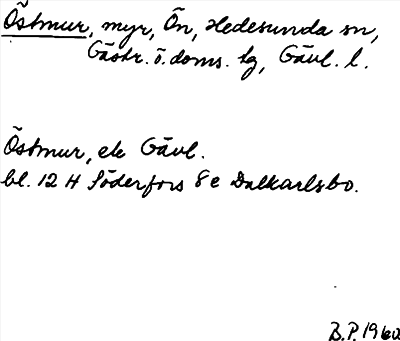 Östmur, myr, Ön, Hedesunda sn,
Gästr. ö. doms. tg, Gävl. l.
Östmur, ek Gävl.
bl. 12 H Söderfors 8 e Dalkarlsbo.
B.P. 1960